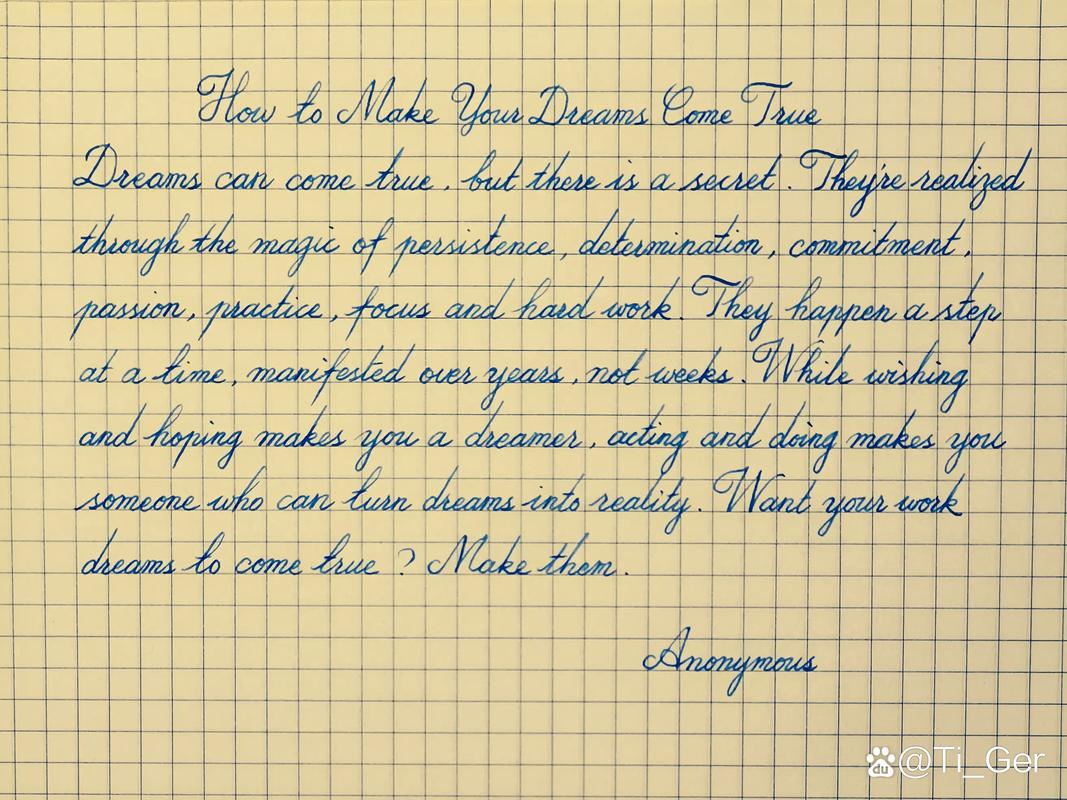 How to Make Your Dreams Come True
Dreams can come true, but there is a secret. They're realized
through the magic of persistence, determination, commitment,
passion, practice, focus and hard work. They happen a step
at a time, manifested over years, not weeks. While wishing
and hoping makes you a dreamer, acting and doing makes you
someone who can turn dreams into reality. Want your work
dreams to come true? Make them.
Anonymous
du @Ti_Ger